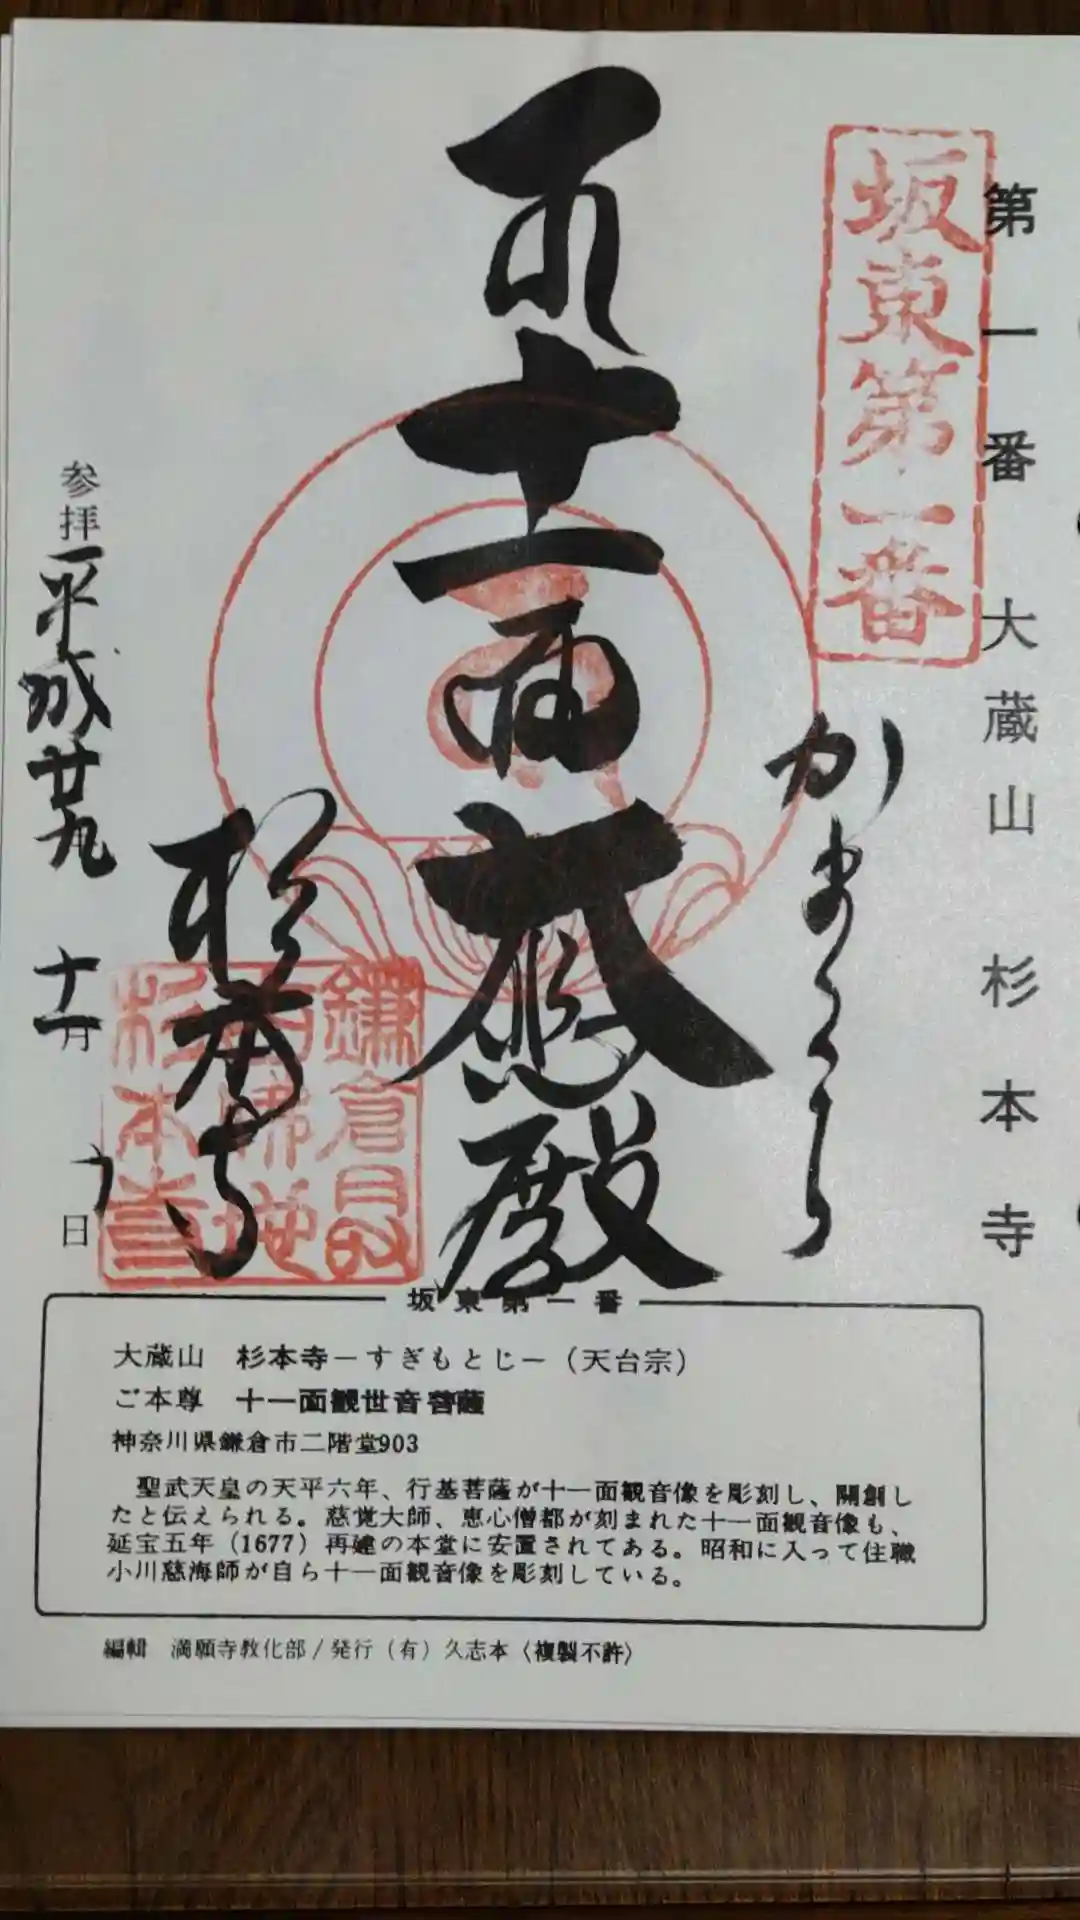 第一番 大蔵山 杉本寺
坂東第一番
かまくら
十一面大悲殿
杉本寺
参拝 平成廿九 十一月 日
坂東第一番
大蔵山 杉本寺－すぎもとじ－（天台宗）
ご本尊 十一面観世音菩薩
神奈川県鎌倉市二階堂903
聖武天皇の天平六年、行基菩薩が十一面観音像を彫刻し、開創し
たと伝えられる。慈覚大師、恵心僧都が刻まれた十一面観音像も、
延宝五年（1677）再建の本堂に安置されてある。昭和に入って住職
小川慈海師が自ら十一面観音像を彫刻している。
編輯 満願寺教化部/発行（有）久志本〈複製不許〉